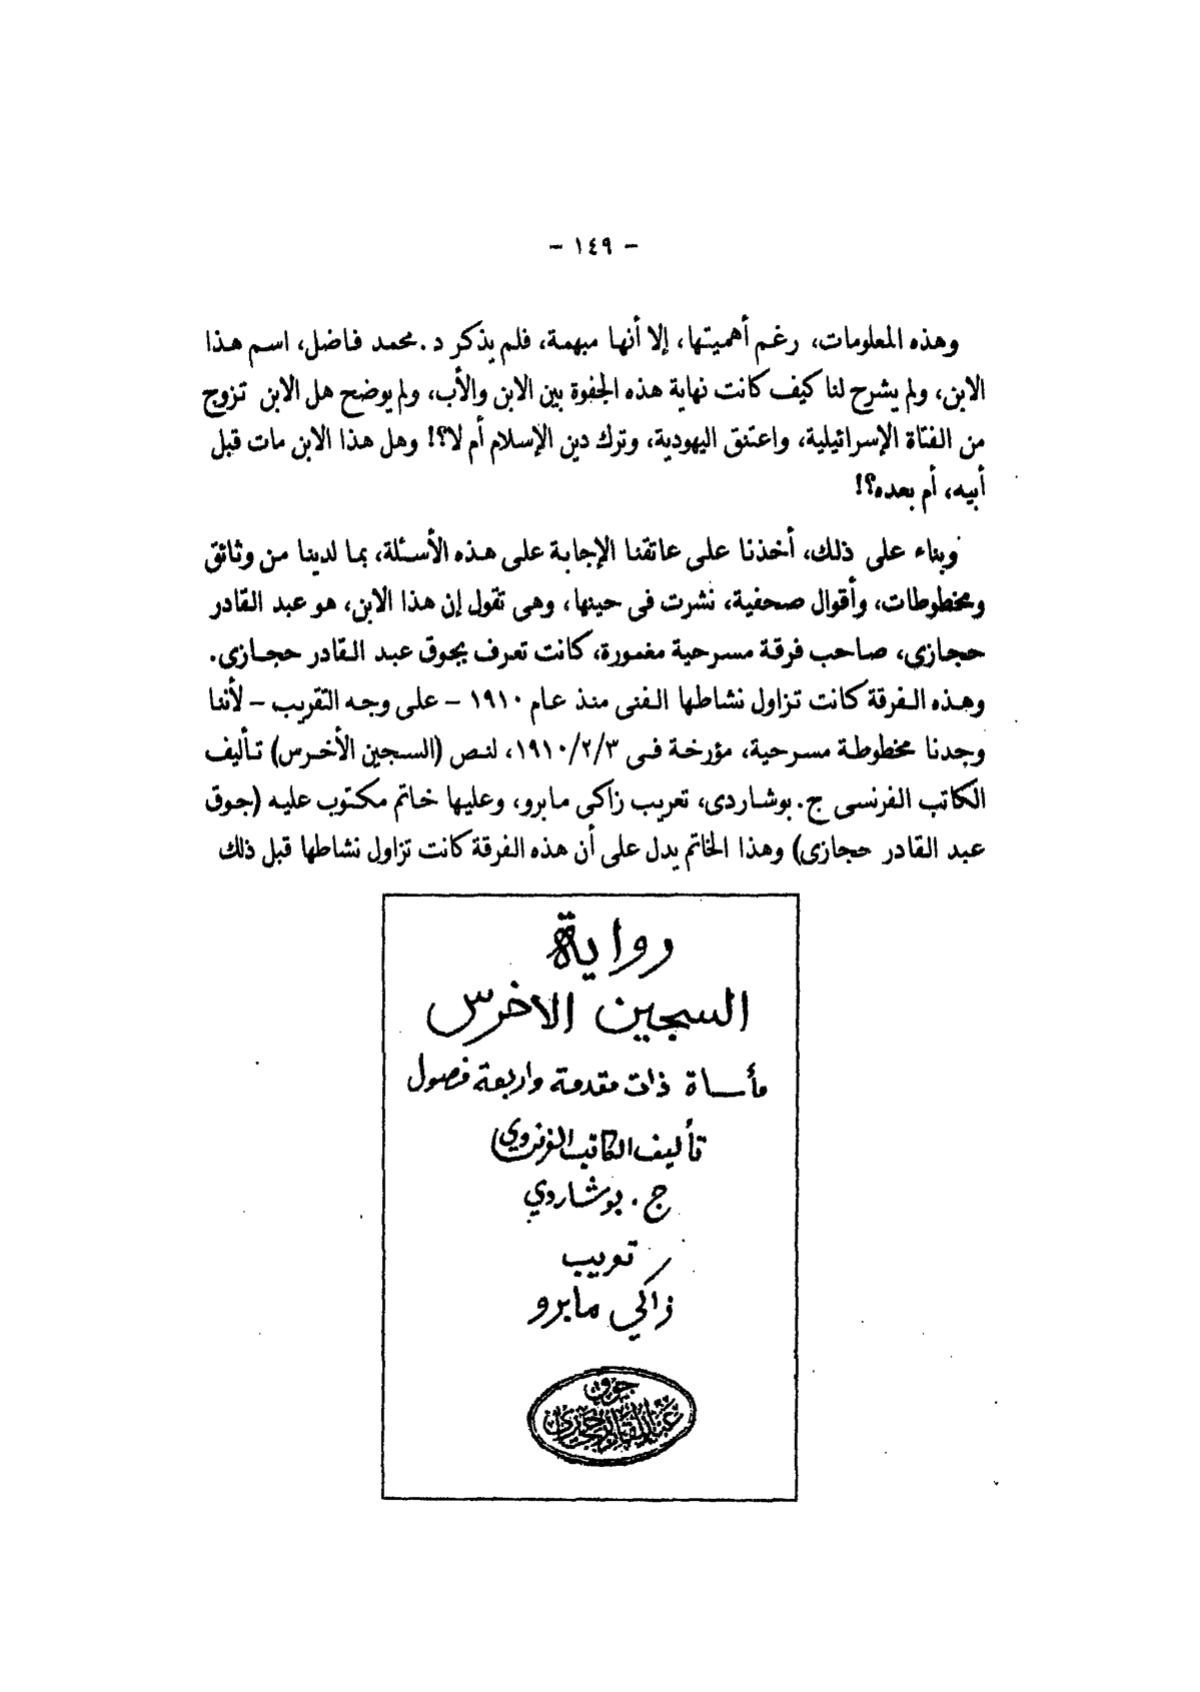 - ١٤٩ -
وهذه المعلومات، رغم أهميتها، إلا أنها مبهمة، فلم يذكر د. محمد فاضل، اسم هذا
الابن، ولم يشرح لنا كيف كانت نهاية هذه الجفوة بين الابن والأب، ولم يوضح هل الابن تزوج
من الفتاة الإسرائيلية، واعتنق اليهودية، وترك دين الإسلام أم لا؟! وهل هذا الابن مات قبل
أبيه، أم بعده؟!
وبناء على ذلك، أخذنا على عاتقنا الإجابة على هذه الأسئلة، بما لدينا من وثائق
ومخطوطات، وأقوال صحفية، نشرت فى حينها، وهى تقول إن هذا الابن، هو عبد القادر
حجازى، صاحب فرقة مسرحية مغمورة، كانت تعرف بجوق عبد القادر حجازى.
وهذه الفرقة كانت تزاول نشاطها الفنى منذ عام ١٩١٠ - على وجه التقريب - لأننا
وجدنا مخطوطة مسرحية، مؤرخة فى ١٩١٠/٢/٣، لنص (السجين الأخرس) تأليف
الكاتب الفرنسى ج. بوشاردى، تعريب زاكى مابرو، وعليها خاتم مكتوب عليه (جوق
عبد القادر حجازى) وهذا الخاتم يدل على أن هذه الفرقة كانت تزاول نشاطها قبل ذلك
رواية
السجين الاخرس
مأساة ذات مقدمة واربعة فصول
تأليف الكاتب الفرنسوي
ج. بوشاردي
تعريب
زاكي مابرو
جوق
عبد القادر حجازي